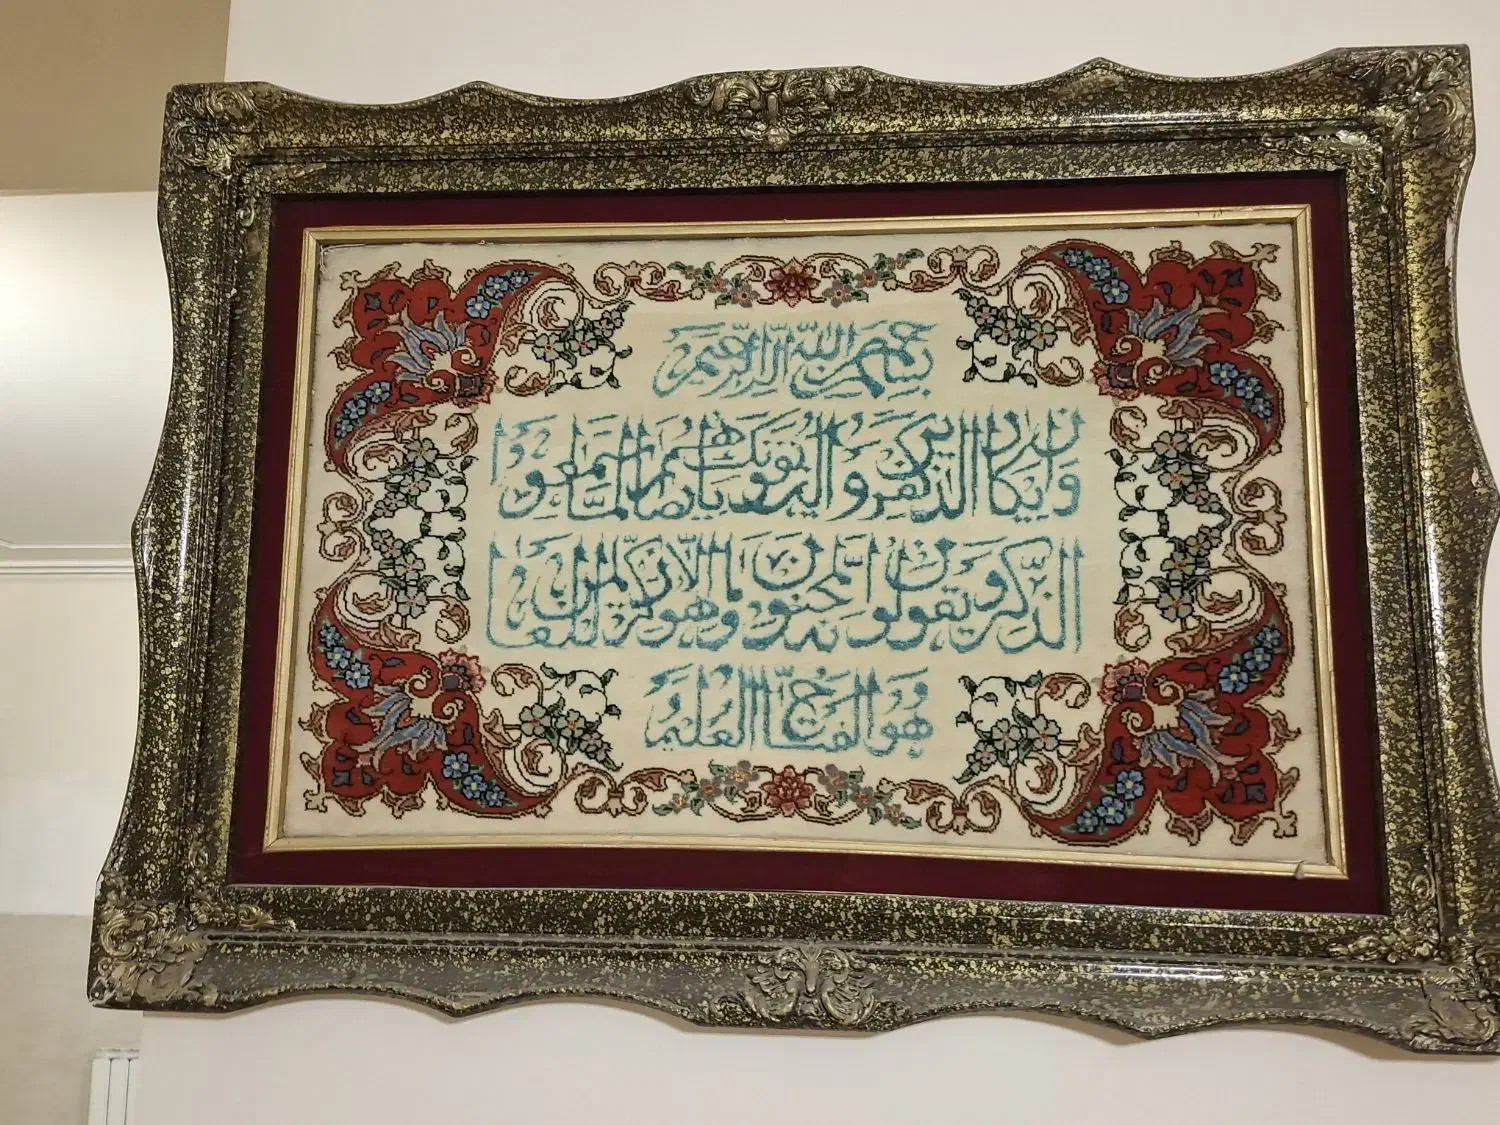 بسم الله الرحمن الرحیم
وان یکاد الذین کفروا لیزلقونک بابصارهم لما سمعوا
الذکر و یقولون انه لمجنون و ما هو الا ذکر للعالمین
و هو الفتاح العلیم